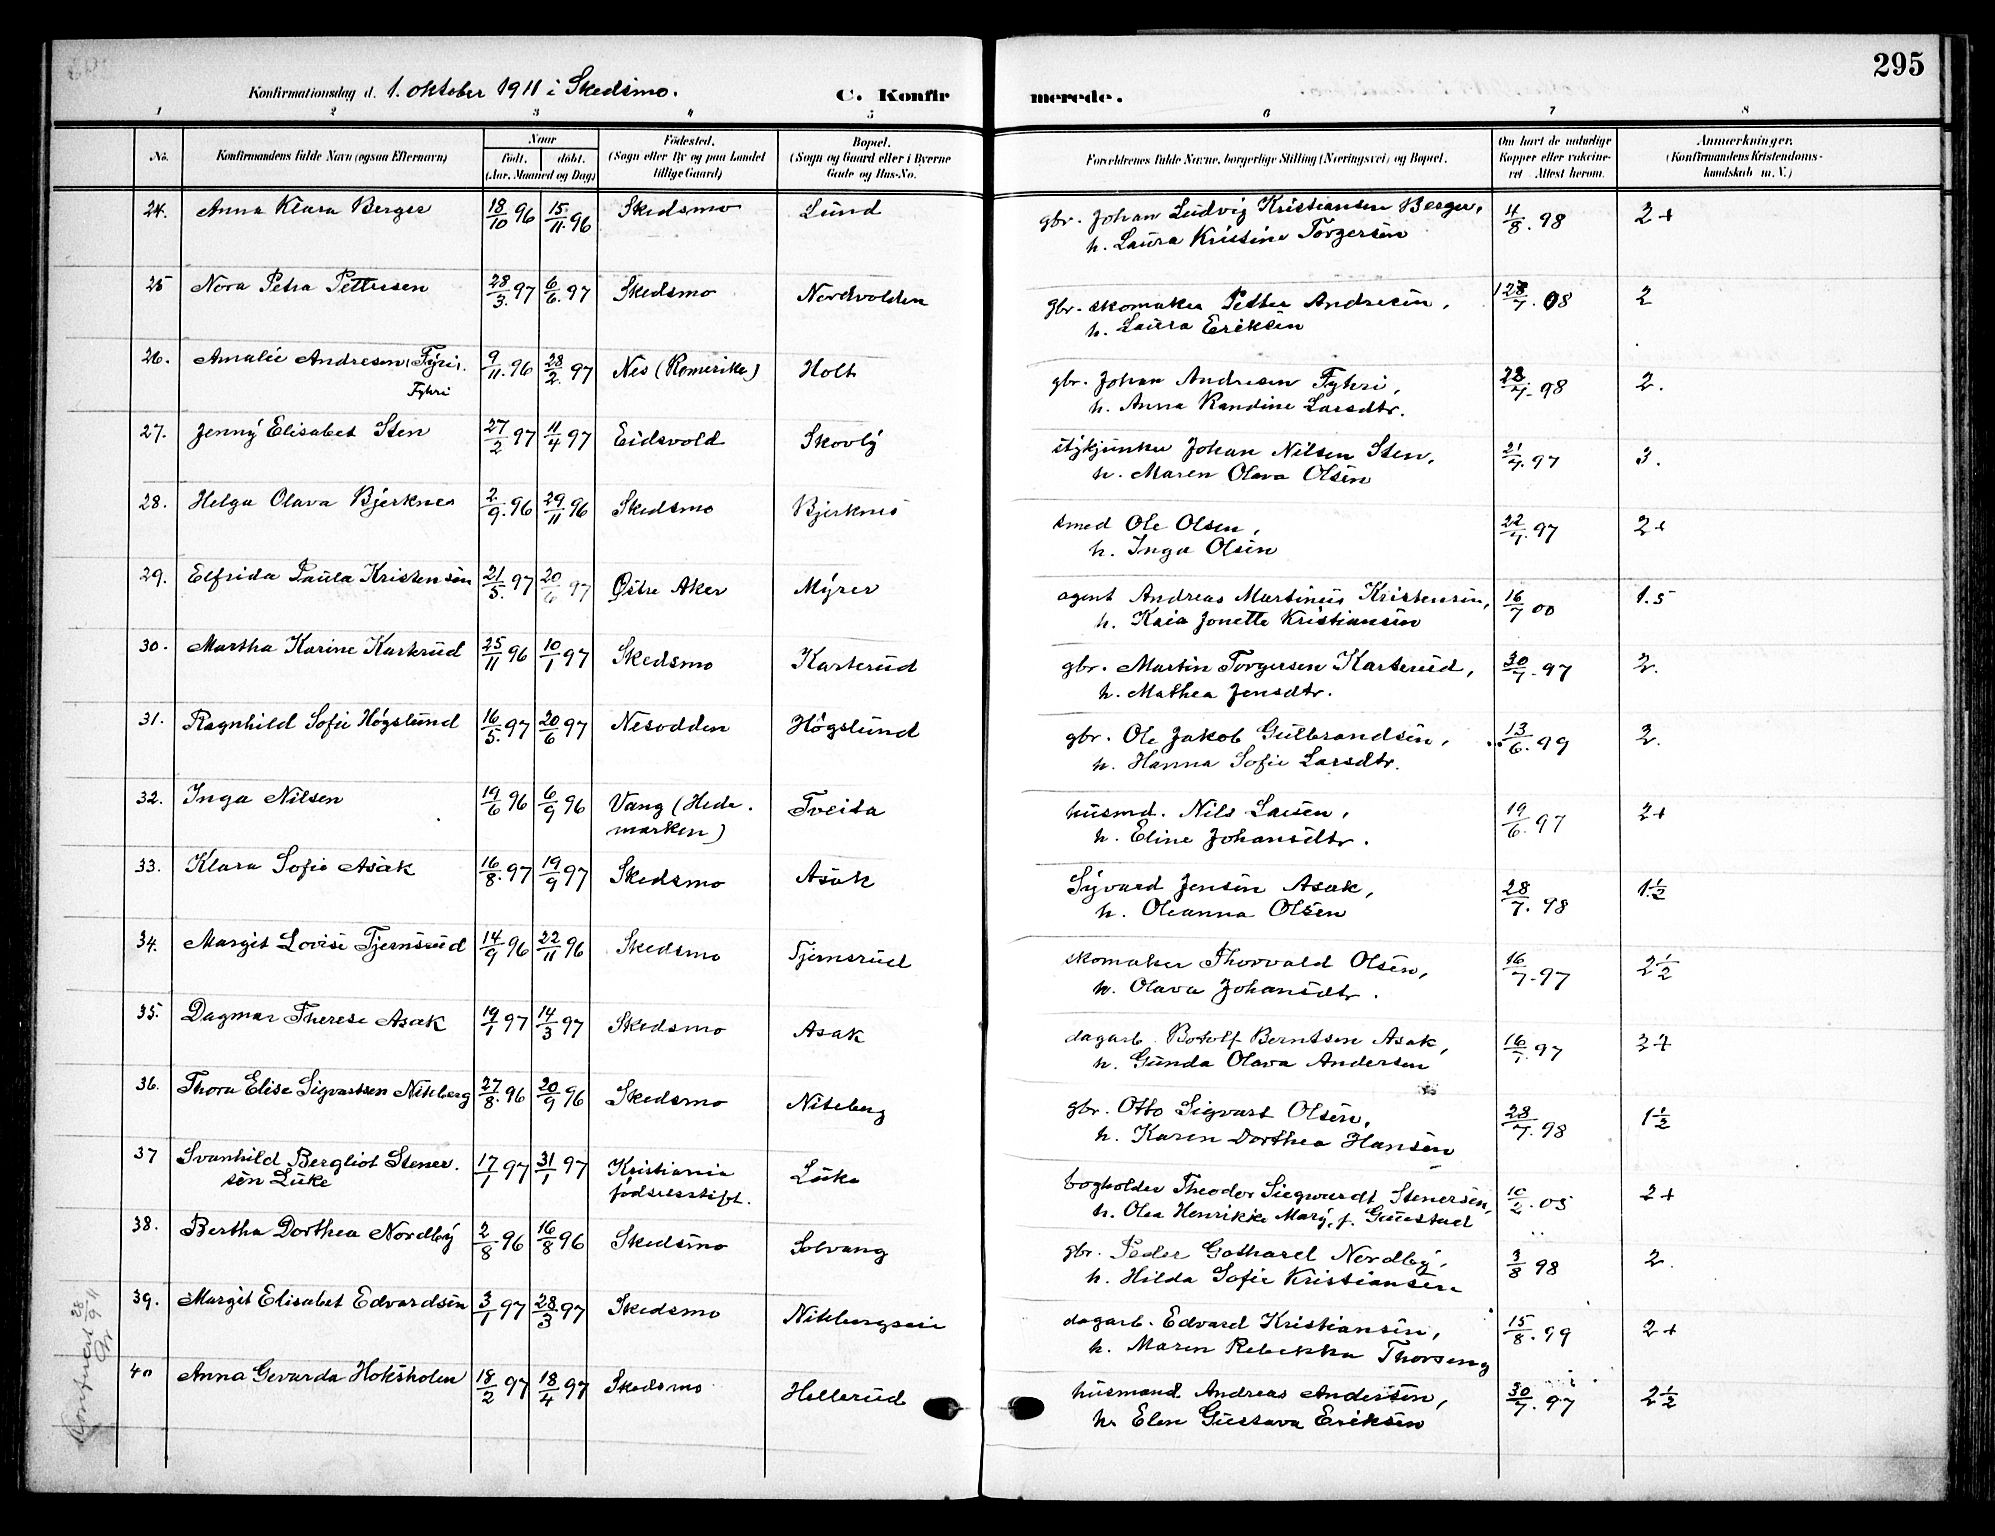 295
Konfirmationsdag d. 1. oktober 1911 i Skedsmo.
C. Konfirmerede.
1 2 3 4 5 6 7 8
No. Konfirmandens fulde Navn (ogsaa Efternavn) Naar født. døbt. (Aar, Maaned og Dag) Fødested. (Sogn eller By og paa Landet tillige Gaard) Bopæl. (Sogn og Gaard eller i Byerne Gade og Hus-No. Forældrenes fulde Navne, borgerlige Stilling (Næringsvei) og Bopæl. Om havt de naturlige Kopper eller vaccineret Attest herom. Anmerkninger. (Konfirmandens Kristendomskundskab m. V.)
24. Anna Klara Berger 18/10 96 15/11 96 Skedsmo Lund gbr. Johan Ludvig Kristiansen Berger, 4/8. 98 2+
h. Laura Kristine Torgersen
25 Nora Petra Pettersen 28/3 97 6/6 97 Skedsmo Nordvolden gbr. skomaker Petter Andresen, 08 2
h. Laura Eriksen
26. Amalie Andresen Fyri. 9/11. 96 28/2. 97 Nes (Romerike) Holt gbr. Johan Andresen Fyhri, 28/7. 98 2.
Fyhri h. Anna Randine Larsdtr.
27. Jenny Elisabet Sten 27/2 97 11/4 97 Eidsvold Skovly stykjunker Johan Nilsen Sten, 21/7. 97 3.
h. Maren Olava Olsen
28. Helga Olava Bjerknes 2/9. 96 29/11 96 Skedsmo Bjerknes smed Ole Olsen, 22/7. 97 2+
h. Inga Olsen
29. Elfrida Paula Kristensen 21/5. 97 20/6 97 Østre Aker Myrer agent Andreas Martinius Kristensen, 16/7 00 1.5
h. Kaia Jonette Kristiansen
30. Martha Karine Karterud 25/11 96 10/1 97 Skedsmo Karterud gbr. Martin Torgersen Karterud, 30/7. 97 2.
h. Mathea Jensdtr.
31. Ragnhild Sofie Høgslund 16/5. 97 20/6 97 Nesodden Høgslund gbr. Ole Jakob Gulbrandsen, 13/6. 99 2.
h. Hanna Sofie Larsdtr.
32. Inga Nilsen 19/6 96 6/9 96 Vang (Hede- Tveita husmd. Nils Larsen, 19/6. 97 2+
marken) h. Eline Johansdtr.
33. Klara Sofie Asak 16/8. 97 19/9 97 Skedsmo Asak Syvard Jensen Asak, 28/7. 98 1½
h. Oleanna Olsen
34. Margit Lovise Tjernsrud 14/9 96 22/11 96 Skedsmo Tjernsrud skomaker Thorvald Olsen, 16/7. 97 2½
h. Olava Johansdtr.
35. Dagmar Therese Asak 19/1 97 14/3 97 Skedsmo Asak dagarb. Botolf Berntsen Asak, 97 2+
h. Gunda Olava Andersen
36. Thora Elise Sigvartsen Niteberg 27/8. 96 20/9 96 Skedsmo Niteberg gbr. Otto Sigvart Olsen, 28/7. 98 1½
h. Karen Dorthea Hansen
37 Svanhild Bergliot Stener- 17/1 97 31/1 97 Kristiania Luke bogholder Theodor Siegwardt Stenersen, 10/2. 05 2+
sen Luke fødselsstift. h. Olea Henrikke Mary, f. Gaustad
38. Bertha Dorthea Nordby 2/8 96 16/8 96 Skedsmo Solvang gbr. Peder Gothard Nordby, 3/8 98 2.
h. Hilda Sofie Kristiansen
39. Margit Elisabet Edvardsen 3/1 97 28/3 97 Skedsmo Nitebergseie dagarb. Edvard Kristiansen, 15/8. 99 2+
h. Maren Rebekka Thorseng
40 Anna Gevarda Holtsholen 18/2 97 18/4 97 Skedsmo Hellerud husmand Andreas Andersen, 30/7. 97 2½
h. Elen Gustava Eriksen